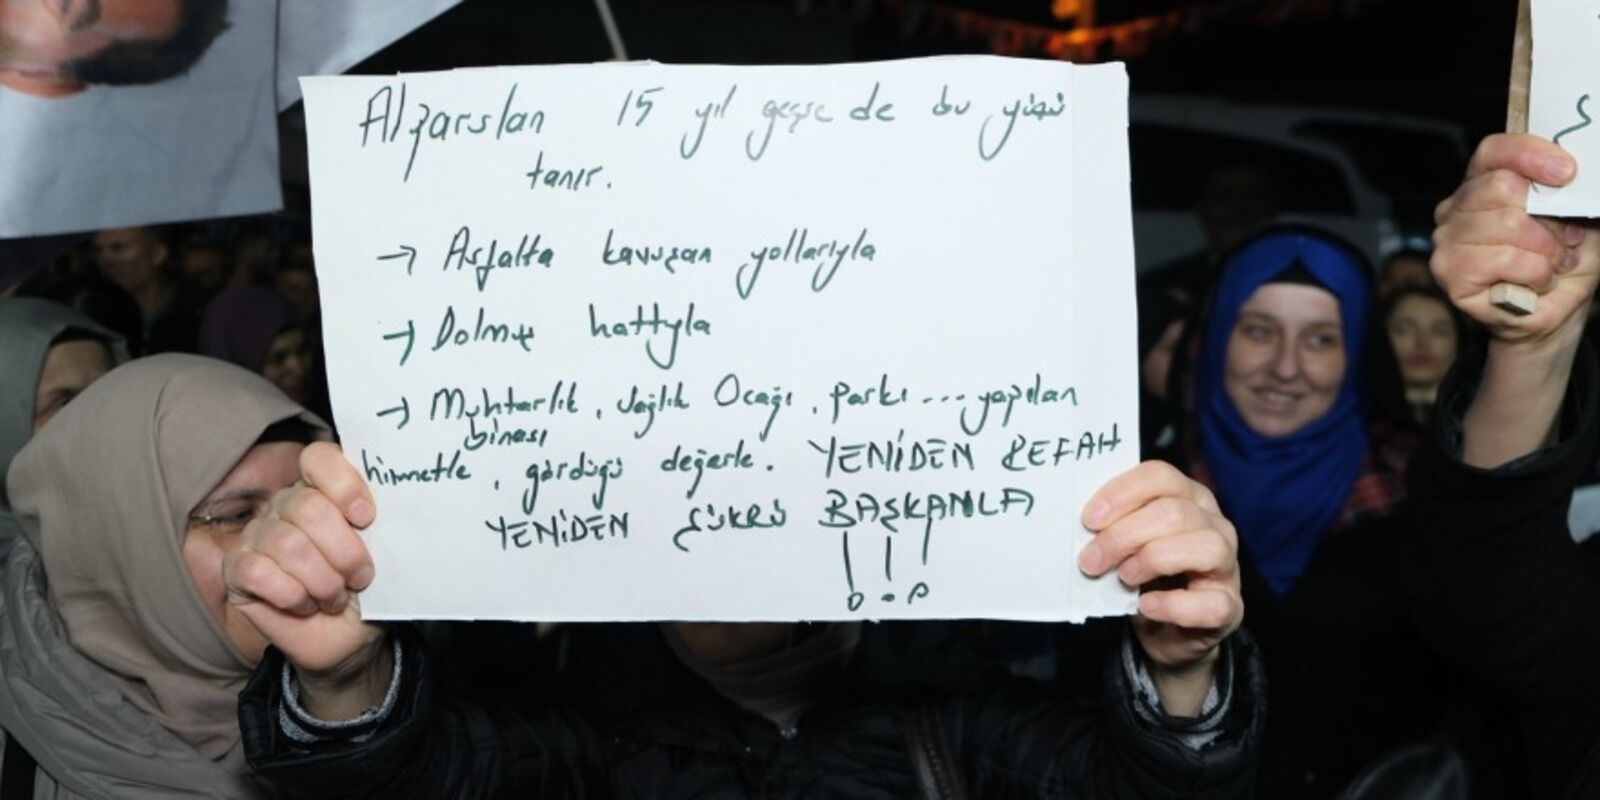 Alparslan 15 yıl geçse de bu yüzü
tanır.
→ Asfalta kavuşan yollarıyla
→ Dolmuş hattıyla
→ Muhtarlık, Sağlık Ocağı, parkı ... yapılan
binası
himmetle, gördüğü değerle. YENİDEN REFAH
YENİDEN ŞÜKRÜ BAŞKANLA
!!!